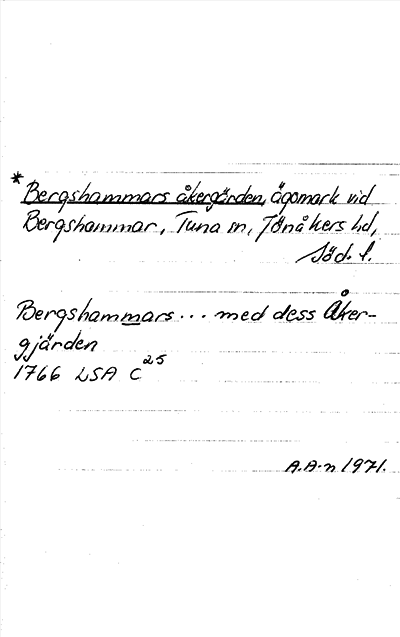 * Bergshammars åkergärden, ägomark vid
Bergshammar, Tuna sn, Jönåkers hd,
Söd. l.
Bergshammars... med dess Åker-
gjärden
1766 LSA C 25
A.A-n 1971.